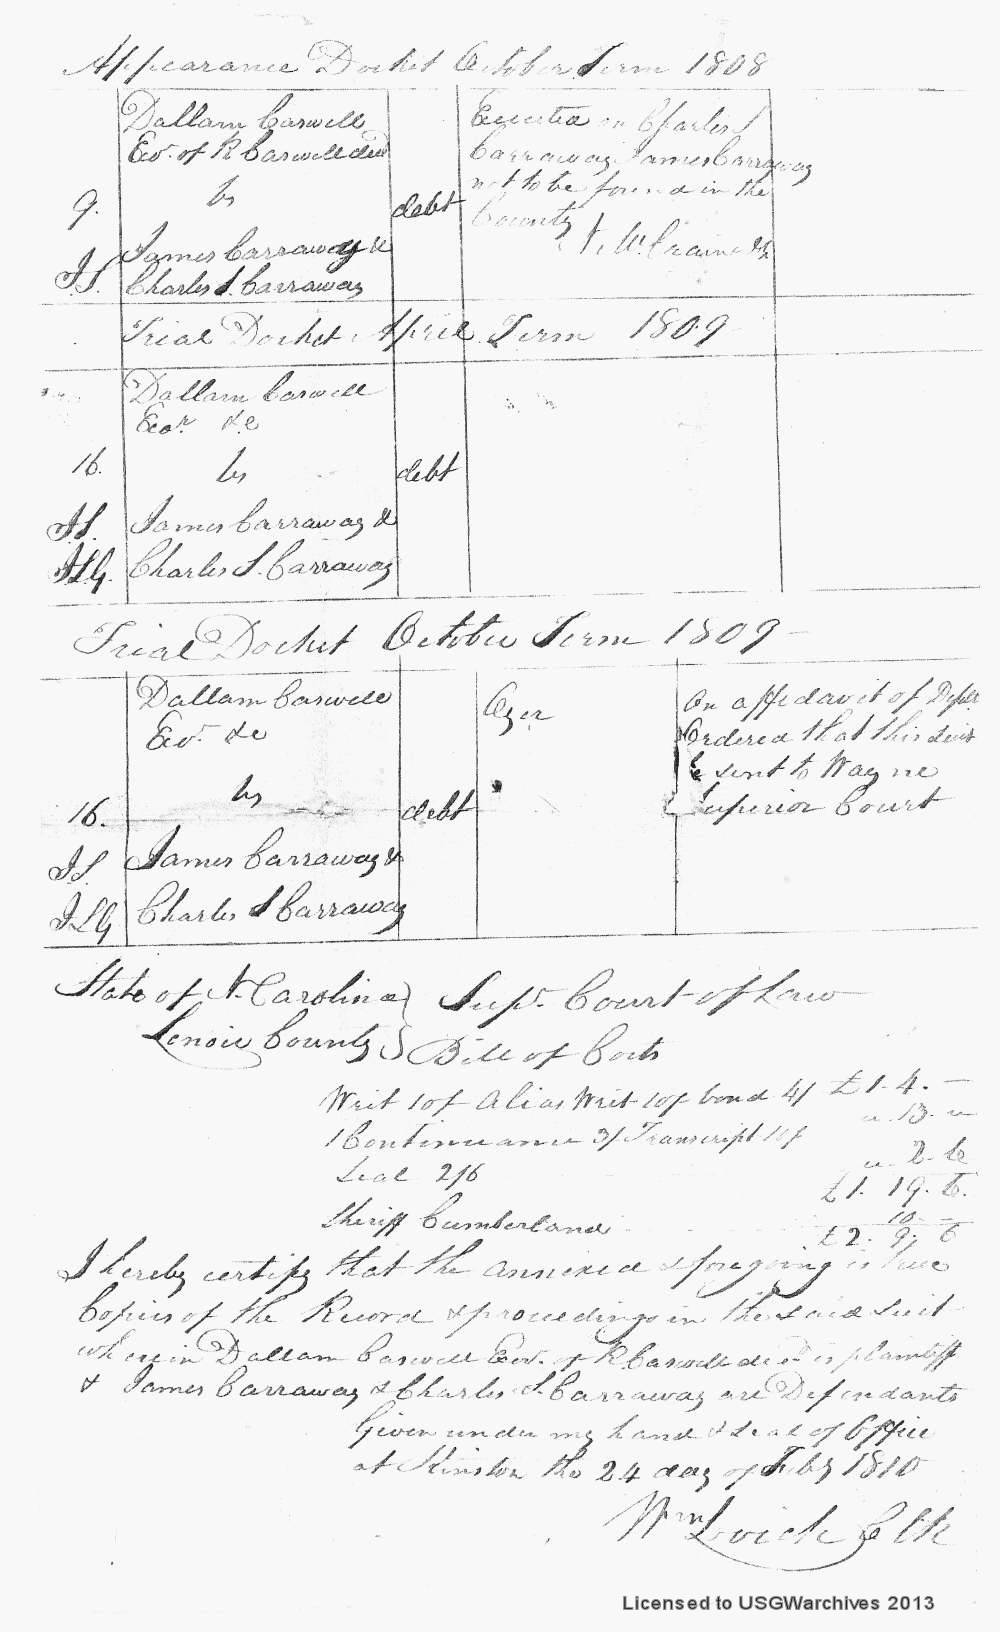 Appearance Docket October Term 1808
Dallam Caswell
Exr. of R Caswell decd
9. vs debt
J.S. James Carraway &
Charles S. Carraway
Executed on Charles S
Carraway James Carraway
not to be found in the
County
Trial Docket April Term 1809
Dallam Caswell
Exor &c
16. vs debt
J.S. James Carraway &
J.L.G. Charles S. Carraway
Trial Docket October Term 1809
Dallam Caswell
Exr. &c
16. vs debt
J S. James Carraway &
J L G Charles S Carraway
Oyer
On affidavit of Deft
Ordered that this suit
be sent to Wayne
Superior Court
State of N. Carolina } Supr. Court of Law
Lenoir County } Bill of Costs
Writ 10/ Alias Writ 10/ bond 4/ £1. 4. —
1 Continuance 3/ Transcript 10/ " 13. "
Seal 2/6 " 2. 6
£1. 19. 6.
Sheriff Cumberland 10. —
£2. 9. 6
I hereby certify that the annexed & foregoing is true
Copies of the Record & proceedings in the said suit
wherein Dallam Caswell Exr. of R Caswell decd is plaintiff
& James Carraway & Charles S. Carraway are Defendants
Given under my hand & seal of Office
at Kinston the 24 day of Feby 1810
Wm Lovick Clk
Licensed to USGWarchives 2013